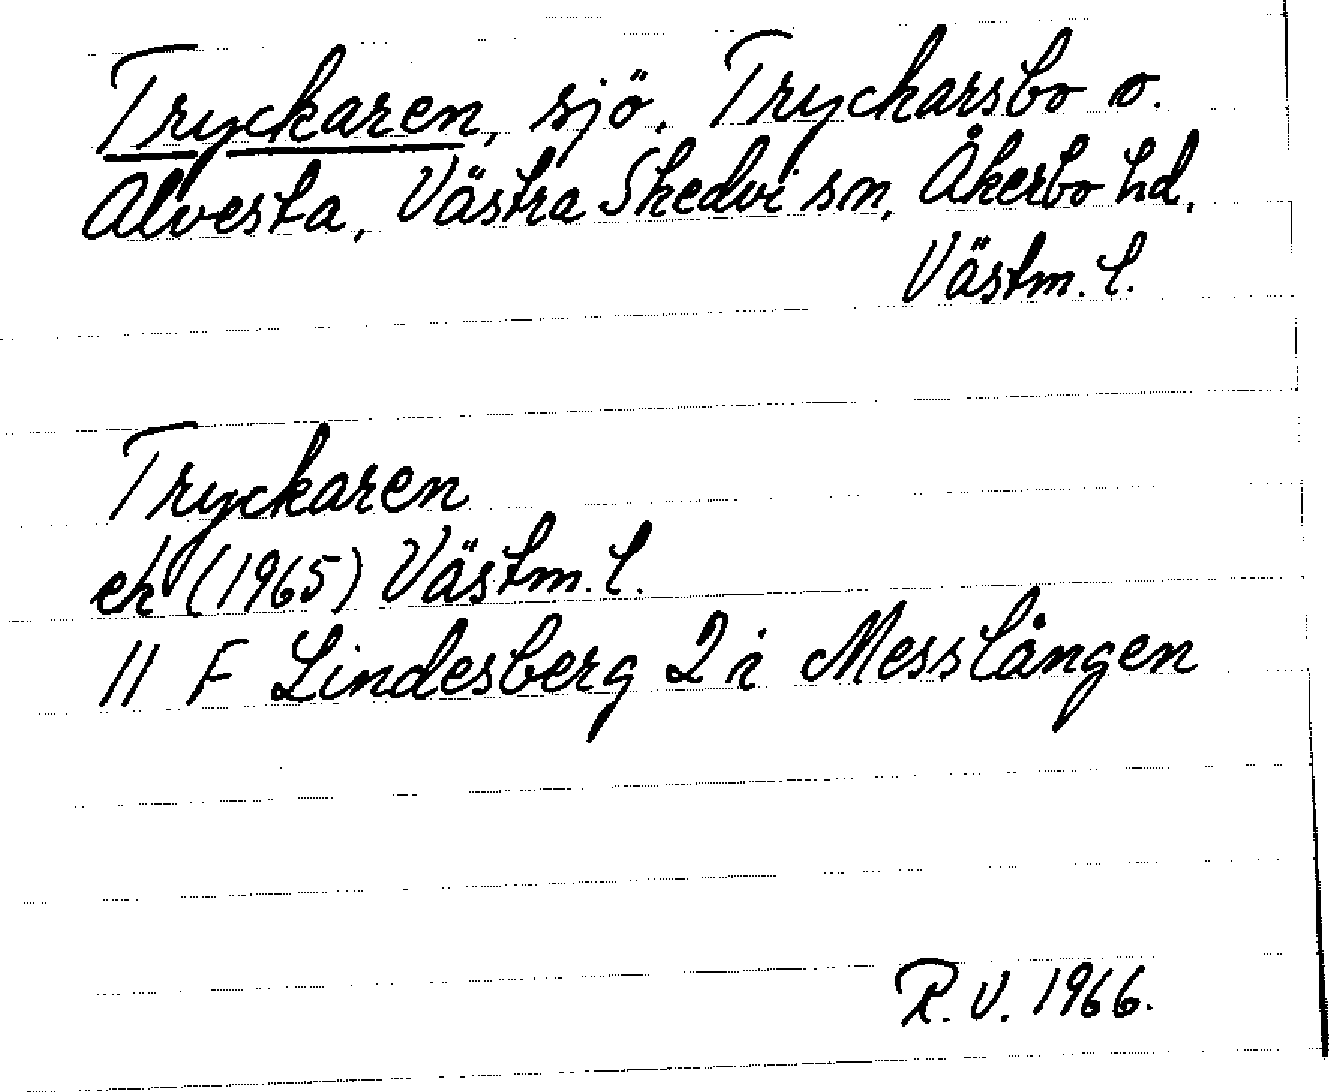 Tryckaren, sjö, Tryckarsbo o.
Alvesta, Västra Skedvi sn, Åkerbo hd,
Västm. l.
Tryckaren
ek (1965) Västm. l.
11 F Lindesberg 2 i Messlången
R. V. 1966.